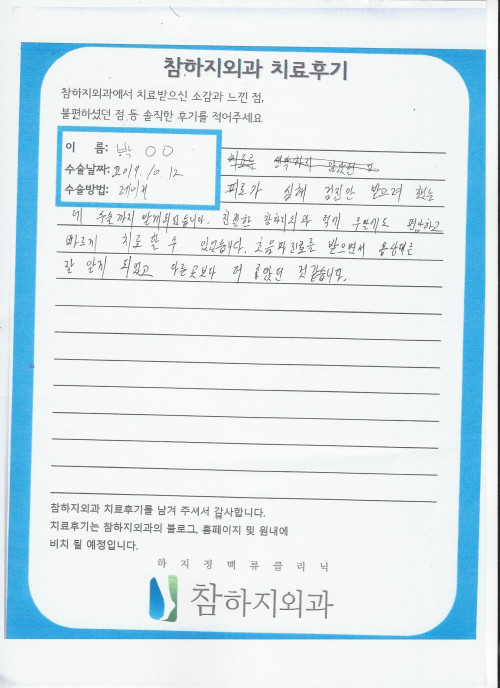 참하지외과 치료후기
참하지외과에서 치료받으신 소감과 느낀 점,
불편하셨던 점 등 솔직한 후기를 적어주세요
이 름: 박 ○○
수술날짜: 2019. 10. 12
수술방법: 레이저
피로가 심해 검진만 받으려 했는
데 수술까지 받게되었습니다. 친절한 참하지외과 덕에 주말에도 편하고
빠르게 치료 할 수 있었습니다. 초음파진료를 받으면서
잘 알게 되었고 다른곳보다 더 좋았던 것같습니다.
참하지외과 치료후기를 남겨 주셔서 감사합니다.
치료후기는 참하지외과의 블로그, 홈페이지 및 원내에
비치 될 예정입니다.
하지정맥류클리닉
참하지외과